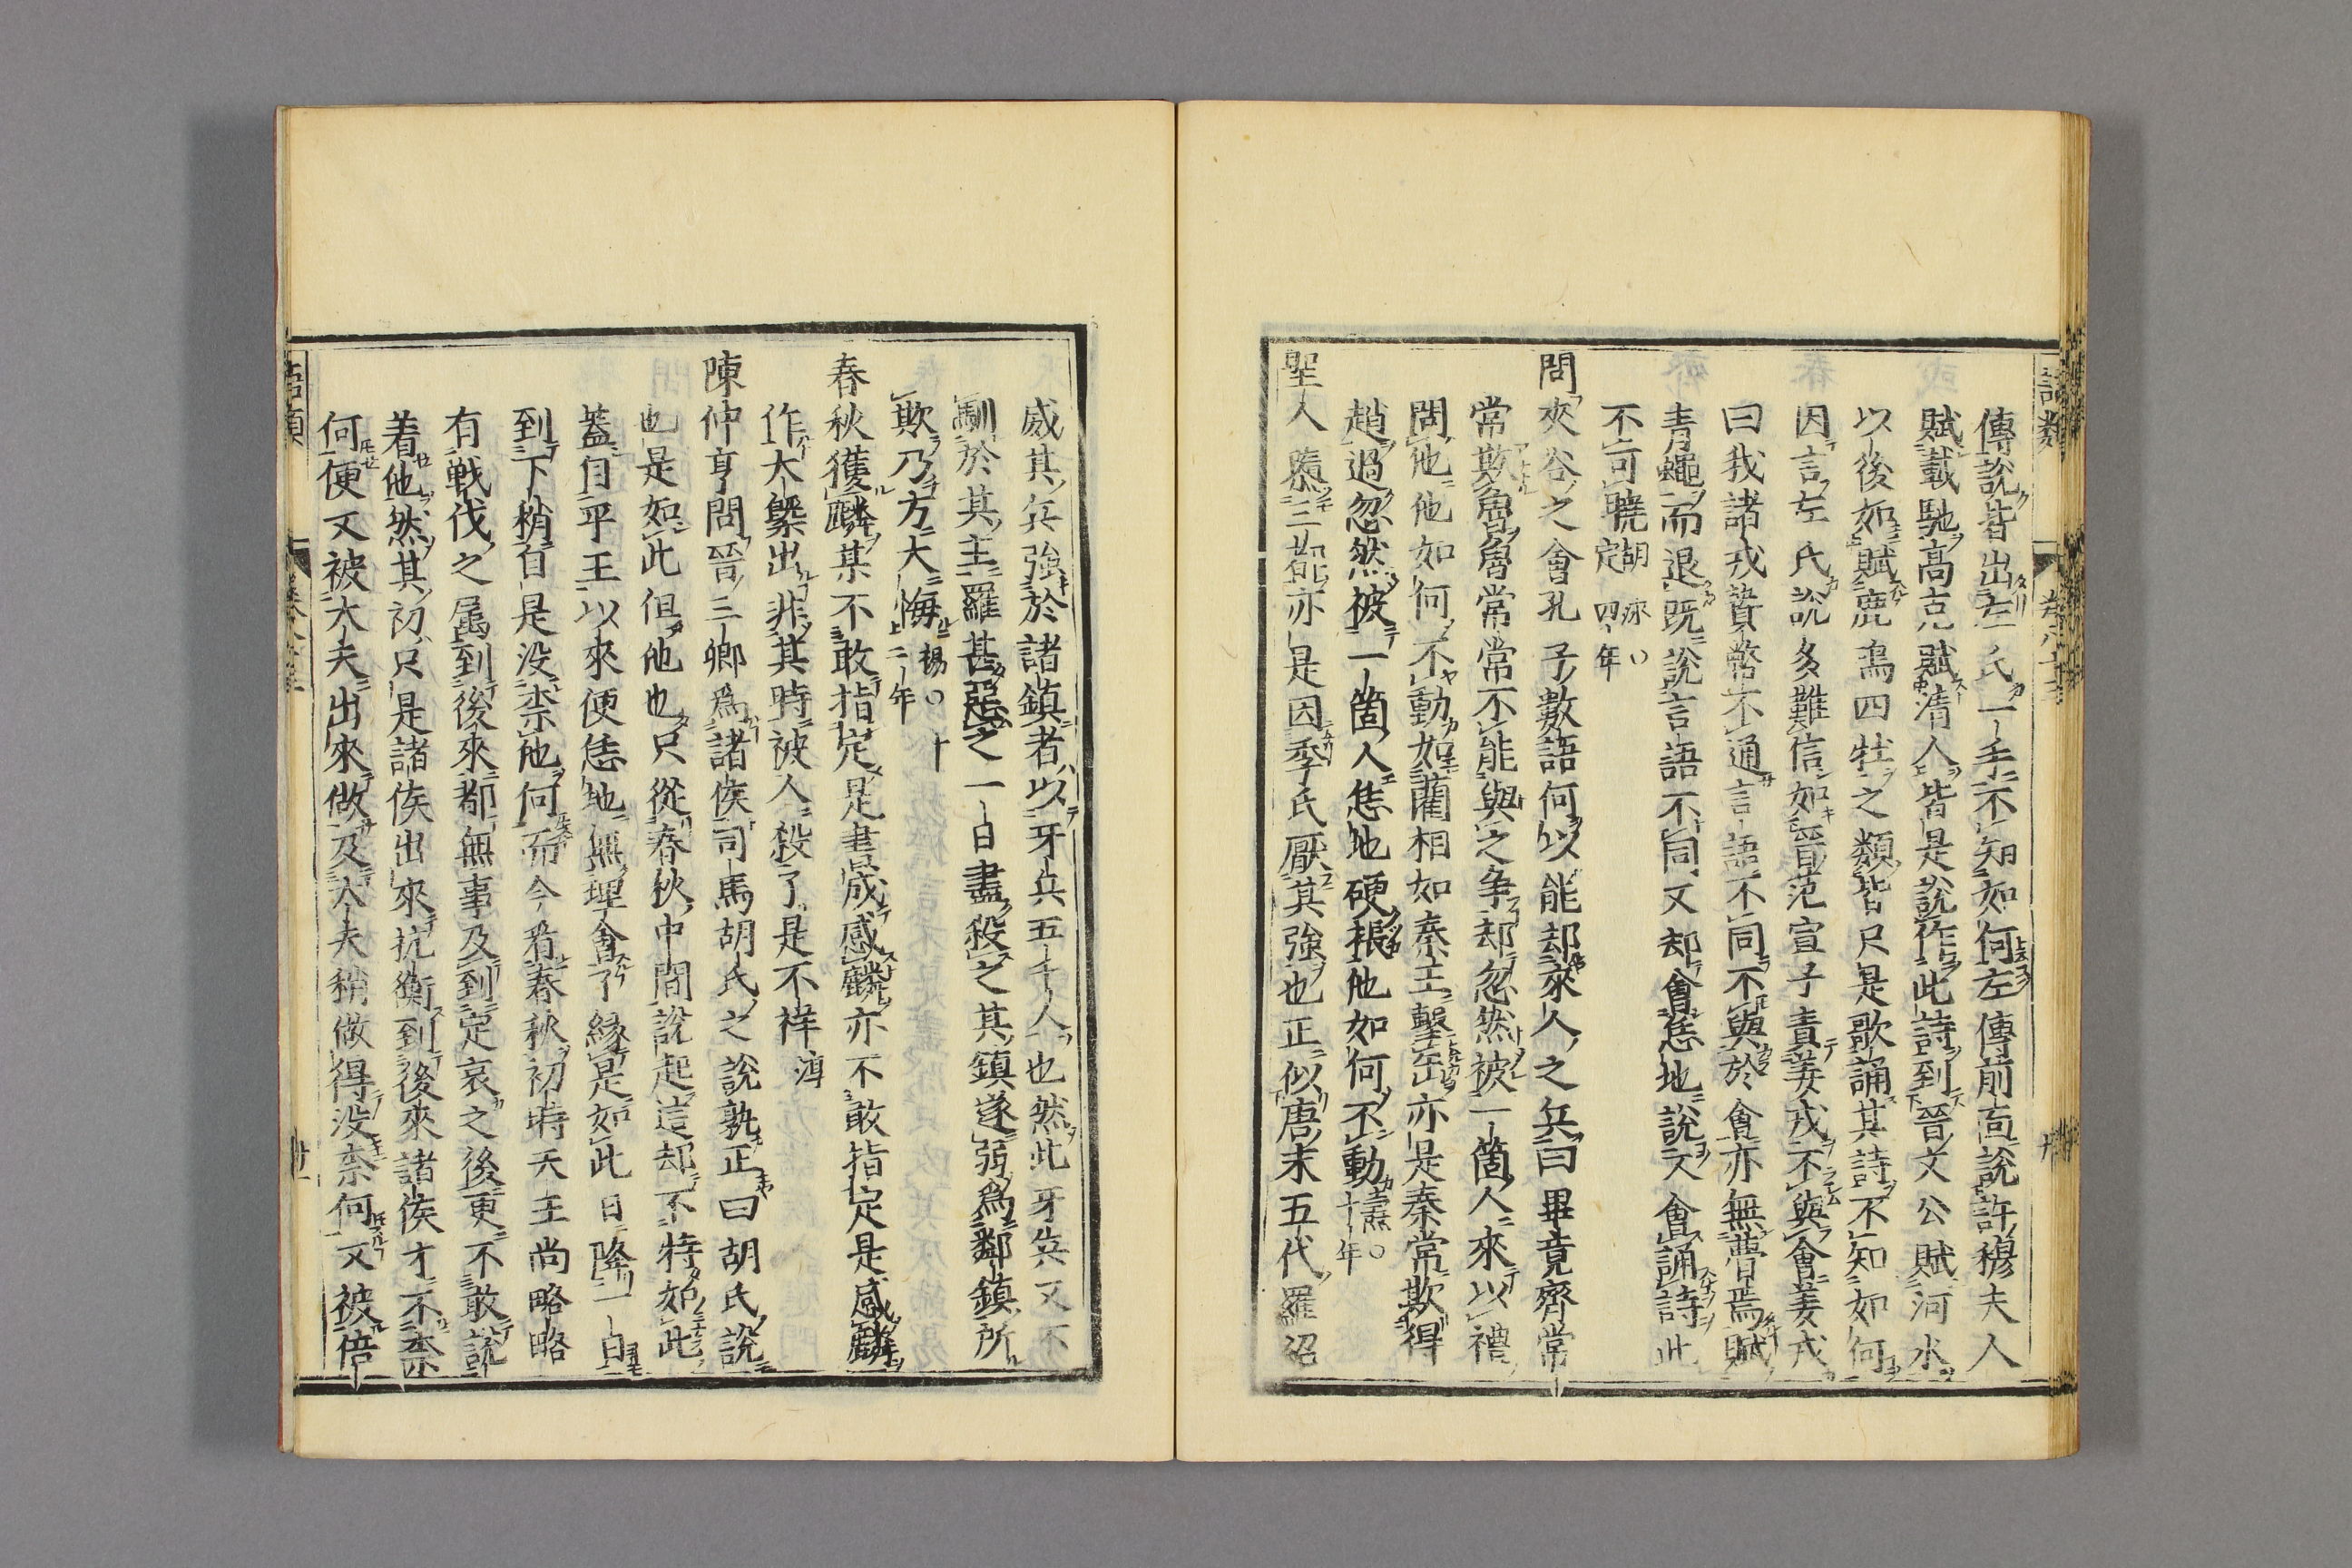 傳說皆出左氏一手不知如何左傳前面說許穆夫人
賦載馳高克賦清人皆是說作此詩到晉文公賦河水
以後如賦鹿鳴四牡之類皆只是歌誦其詩不知如何
因言左氏說多難信如晉范宣子責姜戎不與會姜戎
曰我諸戎贄幣不通言語不同不與於會亦無瞢焉賦
青蠅而退既說言語不同又却會恁地說又會誦詩此
不可曉胡泳○定四年
問夾谷之會孔子數語何以能却萊人之兵曰畢竟齊常
常欺魯魯常常不能與之争却忽然被一箇人來以禮
問他他如何不動如藺相如秦王擊缶亦是秦常欺得
趙過忽然被一箇人恁地硬掁他如何不動燾○十年
聖人隳三都亦是因季氏厭其強也正似唐末五代羅紹
威其兵強於諸鎮者以牙兵五千人也然此牙兵又不
馴於其主羅甚惡之一日盡殺之其鎮遂弱爲鄰鎮所
欺乃方大悔揚○十二年
春秋獲麟某不敢指定是書成感麟亦不敢指定是感麟
作大槩出非其時被人殺了是不祥淳
陳仲亨問晉三卿爲諸侯司馬胡氏之說孰正曰胡氏說
也是如此但他也只從春秋中間說起這却不特如此
蓋自平王以來便恁地無理會了緣是如此日降一日
到下梢自是没柰他何而今看春秋初時天王尚略略
有戰伐之屬到後來都無事及到定哀之後更不敢說
着他然其初只是諸侯出來抗衡到後來諸侯才不柰
何便又被大夫出來做及大夫稍做得没柰何又被倍